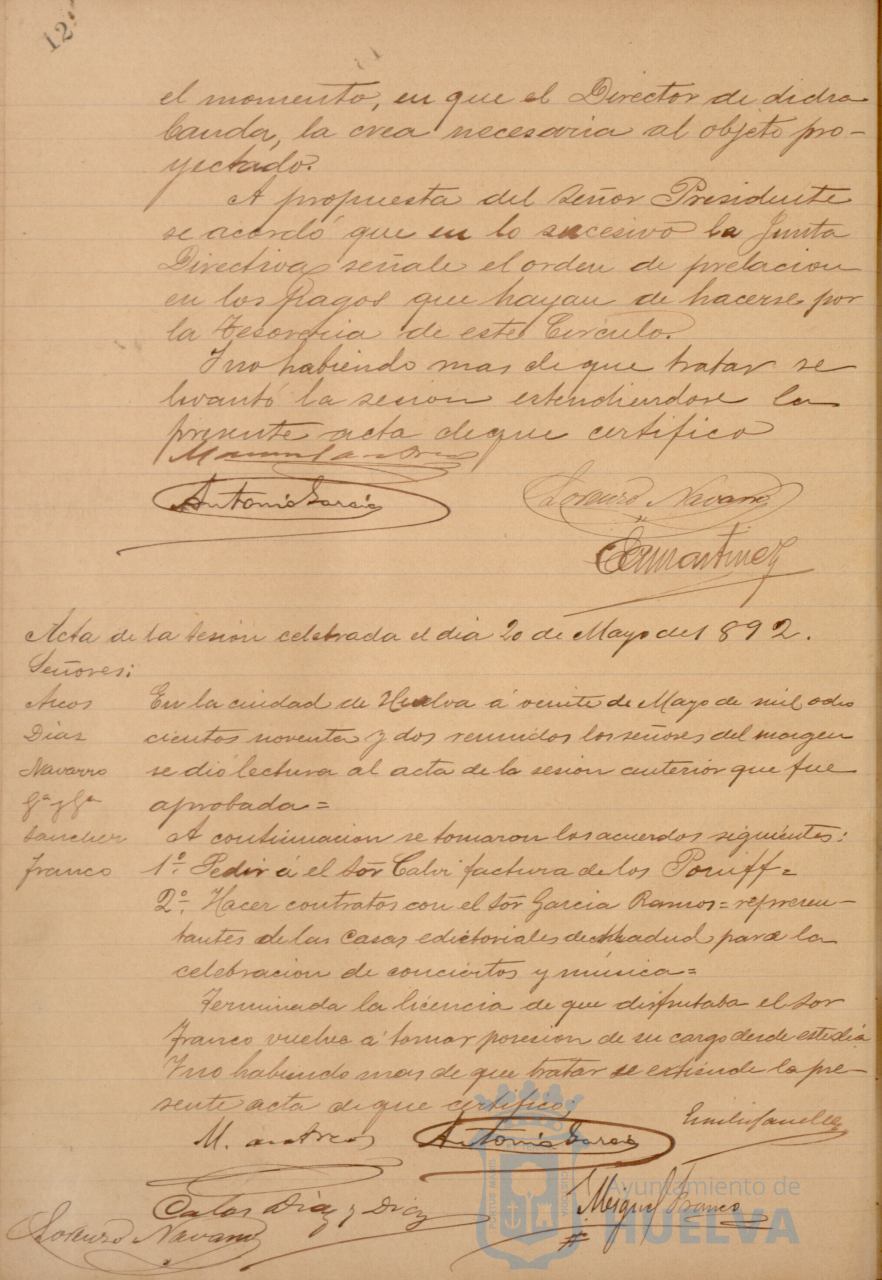 12
el momento, en que el Director de dicha
banda, la crea necesaria al objeto pro-
yectado.
A propuesta del Señor Presidente
se acordó que en lo sucesivo la Junta
Directiva señale el orden de prelacion
en los Pagos que hayan de hacerse por
la Tesoreria de este Circulo.
Y no habiendo mas de que tratar se
levantó la sesion estendiendose la
presente acta de que certifico
Antonio Garcia
Lorenzo Navarro
E Martinez
Acta de la Sesión celebrada el dia 20 de Mayo de 1892.
Señores:
Arcos
Dias
Navarro
Gª y Gª
Sanchez
Franco
En la ciudad de Huelva á veinte de Mayo de mil ocho
cientos noventa y dos reunidos los señores del margen
se dió lectura al acta de la sesion anterior que fue
aprobada =
A continuacion se tomaron los acuerdos siguientes:
1º. Pedir á el Sor Calvi factura de los
2º. Hacer contratos con el Sor Garcia Ramos = represen-
tantes de las casas edictoriales de Madrid para la
celebracion de conciertos y música =
Terminada la licencia de que disfrutaba el Sor
Franco vuelve á tomar posesion de su cargo desde este dia
Y no habiendo mas de que tratar se estiende la pre-
sente acta de que certifico;
M. de Arcos
Antonio Garcia
Emilio Sanchez
Carlos Díaz y Díaz
Miguel Franco
Lorenzo Navarro
Ayuntamiento de
HUELVA